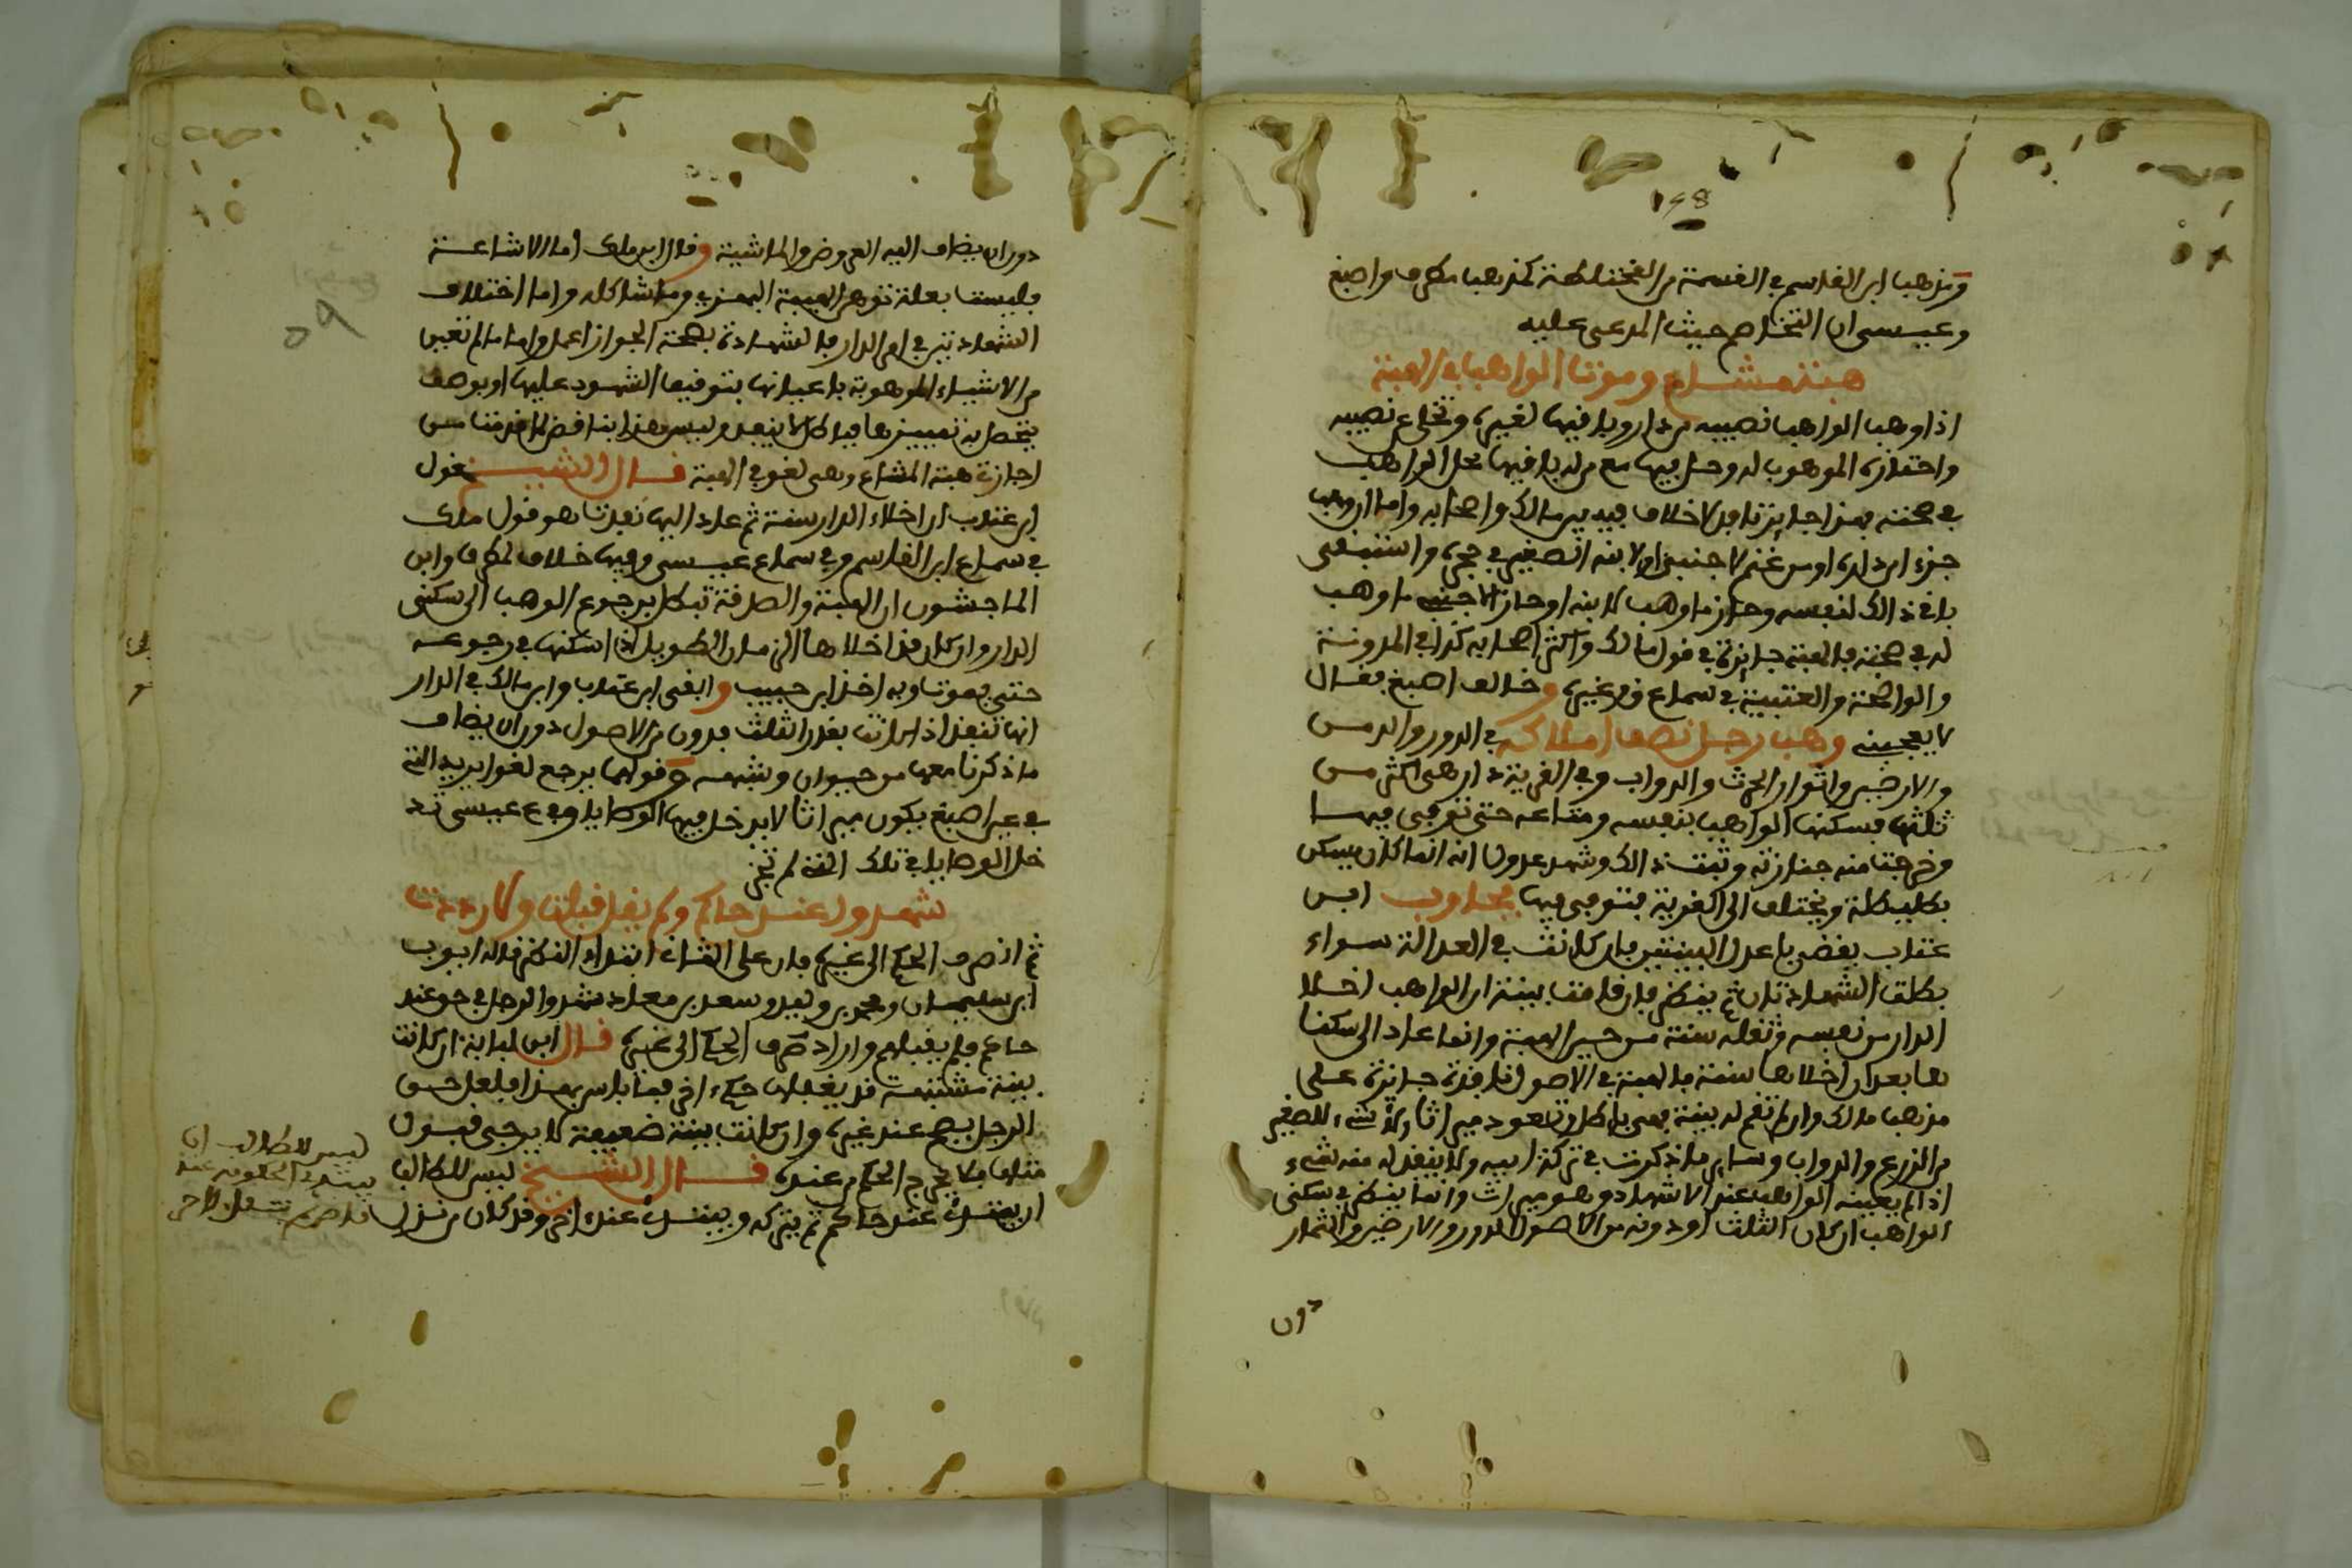 198
ومذهب ابن القاسم في القسمة من المختلطة كمذهب مطرف واصبغ
وعيسى ان التخاصم حيث المدعى عليه
هبة مشاع وموت الواهب في الهبة
اذا وهب الواهب نصيبه من دار وباقيها لغيره وتخلى عن نصيبه
واحتازه الموهوب له وحل فيها مع من له باقيها محل الواهب
في صحته فهذا جائز نافذ لا خلاف فيه بين مالك واصحابه واما ان وهب
جزءا من داره او من غنم لاجنبي او لابنه الصغير في حجره واستبقى
باقي ذالك لنفسه وحاز ما وهب لابنه او حاز الاجنبي ما وهب
له في صحته فالهبة جائزة في قول مالك واكثر اصحابه كذا في المدونة
والواضحة والعتبية في سماع وغيره وخالف اصبغ فقال
لا يعجبني وهب رجل نصف املاكه في الدور والدمس
والارضين واثوار الحرث والدواب وفي القرية دار هي اكثر من
ثلثها فسكنها الواهب بنفسه ومتاعه حتى توفي فيها
وخرجت منه جنازته وثبت ذالك وشهد عدول انه انما كان يسكن
بطليطلة ويختلف الى القرية فتوفي فيها فجاوب ابن
عتاب يقضى باعدل البينتين فان كانت في العدالة سواء
بطلت الشهادتان ثم ينظر فان قامت بينة ان الواهب اخلا
الدار من نفسه وثقله سنة من حين الهبة وانما عاد الى سكنا
ها بعد ان اخلاها سنة فالهبة في الاصول نافذة جائزة على
مذهب مالك وان لم تقم له بينة فهي باطل وتعود ميراثا ولا شيء للصغير
من الزرع والدواب وسائر ما ذكرت في تركة ابيه ولا ينفذ له منه شيء
اذا لم يعينه الواهب عند الاشهاد وهو ميراث وانما ينظر في سكنى
الواهب ان كان الثلث او دونه من الاصول الدور والارضين والثمار
دون
دون ان يضاف اليه العروض والماشية وقال ابن مالك اما الاشاعة
فليست بعلة توهن الهبة بهذا وما شاكله واما اختلاف
الشهادتين في امر الدار فالشهادة بصحة الجواز اعمل واما ما لم تعين
من الاشياء الموهوبة باعيانها بتوقيف الشهود عليها او بوصف
يحصل به تمييزها فباطل لا ينفذ وليس هذا بناقض لما قدمنا من
اجازة هبة المشاع وهي لغو في الهبة قال الشيخ قول
ابن عتاب ان اخلاء الدار سنة ثم عاد اليها نفذت هو قول مالك
في سماع ابن القاسم وفي سماع عيسى وفيها خلاف لمطرف وابن
الماجشون ان الهبة والصدقة تبطل برجوع الوهب الى سكنى
الدار وان كان قد اخلاها الزمان الطويل اذا سكنها في رجوعه
حتى يموت وبه اخذ ابن حبيب وابقى ابن عتاب وابن مالك في الدار
انها تنفذ اذا كانت بقدر الثلث فدون من الاصول دون ان يضاف
ما ذكرنا معها من حيوان وشبهه وقولهما يرجع لغوا يريد التي
في عن اصبغ يكون ميراثا لا يدخل فيها الوصايا وفي ع عيسى تد
خل الوصايا في تلك الهبة لم تجز
شهدوا عند حاكم ولم يقل قبلت ولا رددت
ثم انصرف الحكم الى غيره فان على الثاني ابتداء النظر قاله ايوب
ابن سليمان ومحمد بن وليد وسعد بن معاذ شهدوا لرجل في حق عند
حاكم فلم يقبلهم واراد صرف الحكم الى غيره قال ابن لبابة ان كانت
بينة مشتبهة قد يقبلها حكم اخر فما باس بهذا فلعل حق
الرجل يصح عند غيره وان كانت بينة ضعيفة لا يرجى قبول
مثلها فلا يخرج الحكم من عنده قال الشيخ ليس للطالب
ان يبتدئ عند حاكم ثم يتركه ويبتدئ عند اخر وقد كان من نزل
ليس للطالب ان
يبتدئ الحكومة عند
قاض ثم ينتقل لاخر